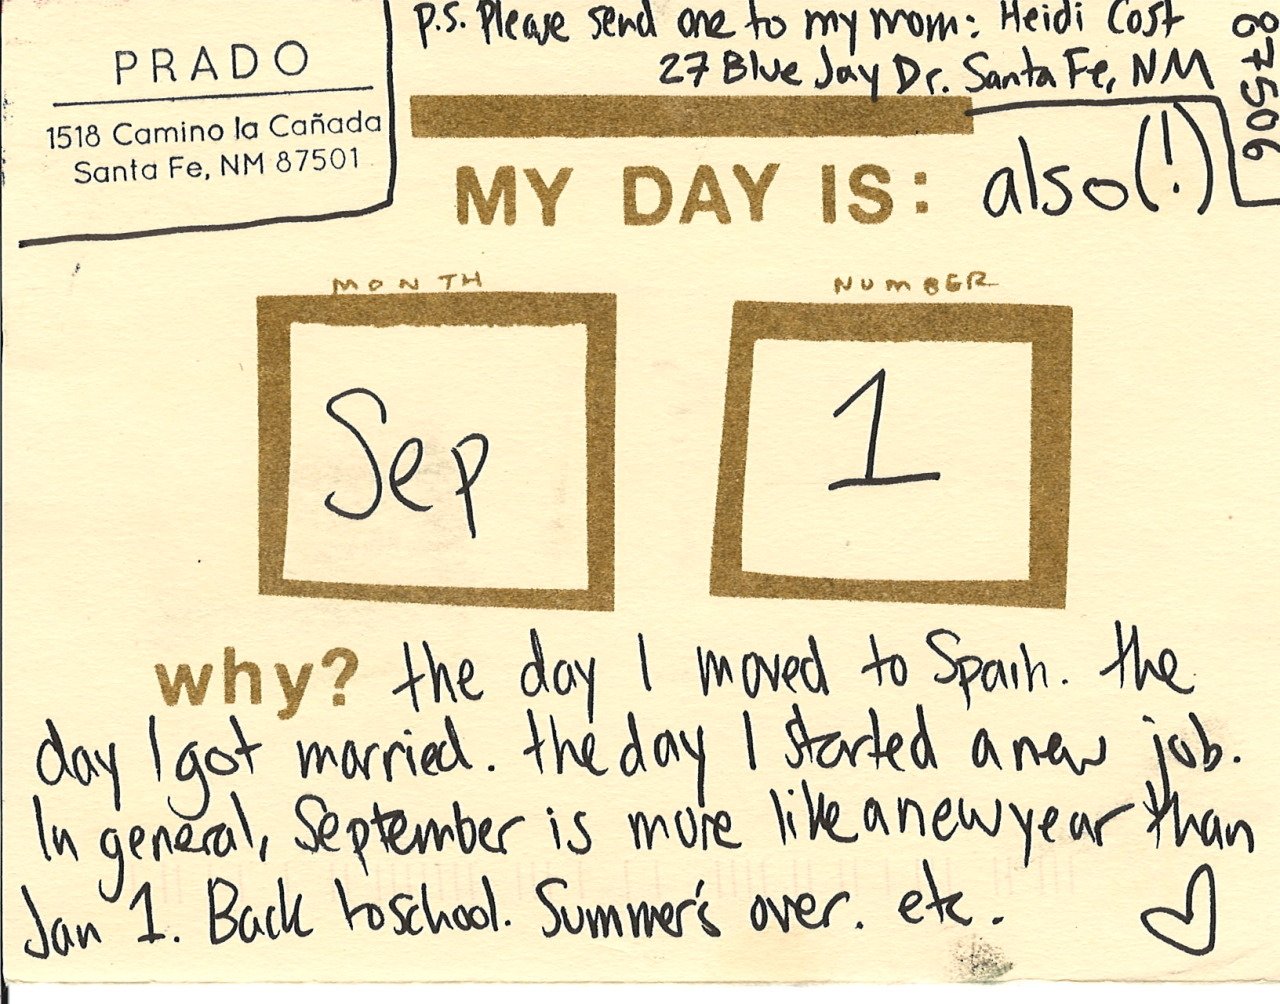 PRADO
1518 Camino la Cañada
Santa Fe, NM 87501
p.s. Please send one to my mom: Heidi Cost
27 Blue Jay Dr. Santa Fe, NM
87506
MY DAY IS: also(!)
MONTH
NUMBER
Sep
1
why? the day I moved to Spain. the
day I got married. the day I started a new job.
In general, September is more like a new year than
Jan 1. Back to school. Summer's over. etc.